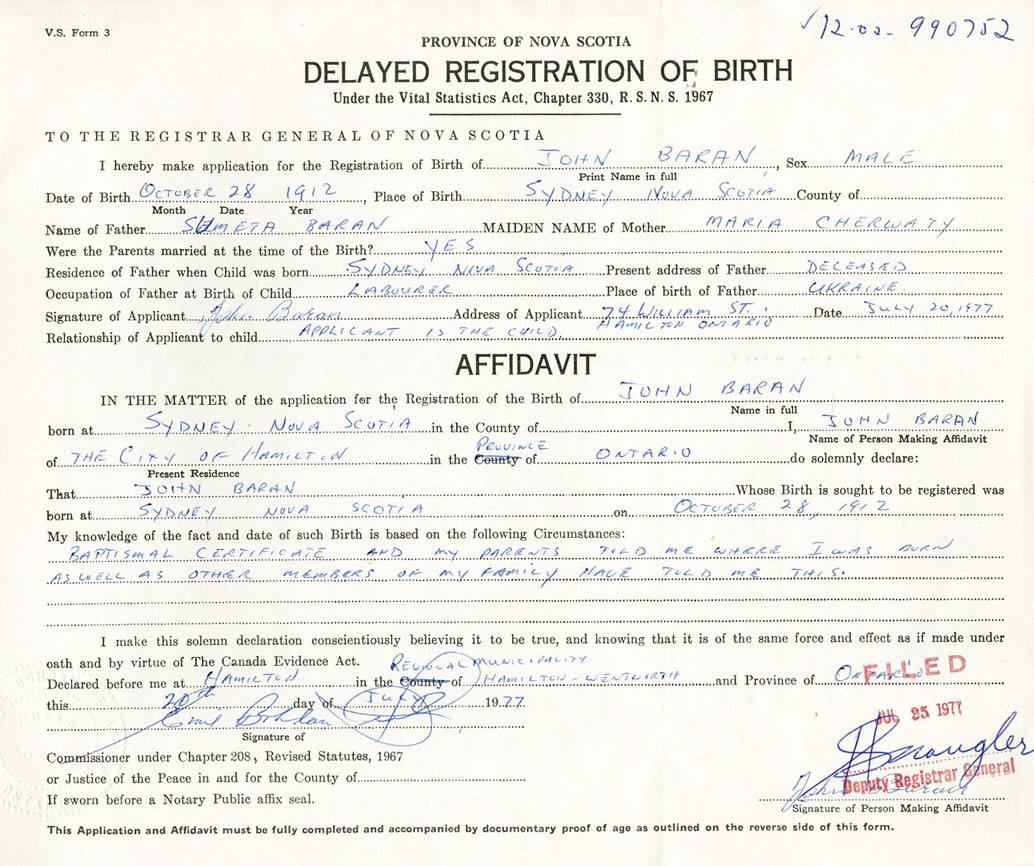 V.S. Form 3
12-02-990752
PROVINCE OF NOVA SCOTIA
DELAYED REGISTRATION OF BIRTH
Under the Vital Statistics Act, Chapter 330, R. S. N. S. 1967
TO THE REGISTRAR GENERAL OF NOVA SCOTIA
I hereby make application for the Registration of Birth of JOHN BARAN, Sex MALE
Print Name in full
Date of Birth OCTOBER 28 1912, Place of Birth SYDNEY NOVA SCOTIA County of
Month Date Year
Name of Father BARAN MAIDEN NAME of Mother MARIA CHERWATY
Were the Parents married at the time of the Birth? YES
Residence of Father when Child was born SYDNEY NOVA SCOTIA Present address of Father DECEASED
Occupation of Father at Birth of Child LABOURER Place of birth of Father UKRAINE
Signature of Applicant John Baran Address of Applicant 74 WILLIAM ST. Date JULY 20, 1977
HAMILTON ONTARIO
Relationship of Applicant to child APPLICANT IS THE CHILD.
AFFIDAVIT
IN THE MATTER of the application for the Registration of the Birth of JOHN BARAN
Name in full
born at SYDNEY NOVA SCOTIA in the County of I, JOHN BARAN
Name of Person Making Affidavit
of THE CITY OF HAMILTON in the County PROVINCE of ONTARIO do solemnly declare:
Present Residence
That JOHN BARAN Whose Birth is sought to be registered was
born at SYDNEY NOVA SCOTIA on OCTOBER 28, 1912
My knowledge of the fact and date of such Birth is based on the following Circumstances:
BAPTISMAL CERTIFICATE AND MY PARENTS TOLD ME WHERE I WAS BORN
AS WELL AS OTHER MEMBERS OF MY FAMILY HAVE TOLD ME THIS.
I make this solemn declaration conscientiously believing it to be true, and knowing that it is of the same force and effect as if made under
oath and by virtue of The Canada Evidence Act.
REGIONAL MUNICIPALITY
Declared before me at HAMILTON in the County of HAMILTON-WENTWORTH and Province of ONTARIO
FILED
this 20th day of JULY 1977
JUL 25 1977
Signature of
Commissioner under Chapter 208, Revised Statutes, 1967
or Justice of the Peace in and for the County of
Deputy Registrar General
John Baran
If sworn before a Notary Public affix seal.
Signature of Person Making Affidavit
This Application and Affidavit must be fully completed and accompanied by documentary proof of age as outlined on the reverse side of this form.